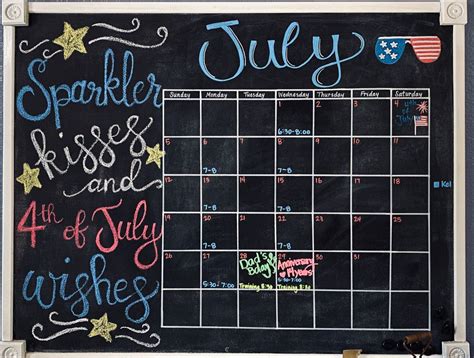 Sparkler
kisses
and
4th of July
wishes
July
Sunday Monday Tuesday Wednesday Thursday Friday Saturday
1 2 3 4
4th
of
July!
6:30-8:00
5 6 7 8 9 10 11
7-8 7-8
12 13 14 15 16 17 18
Kol
7-8 7-8
19 20 21 22 23 24 25
7-8 7-8
26 27 28 29 30 31
Dad's
Bday
Anniversary
5:30-7:00 5:30-7:00
Training 8:30 Training 8:30